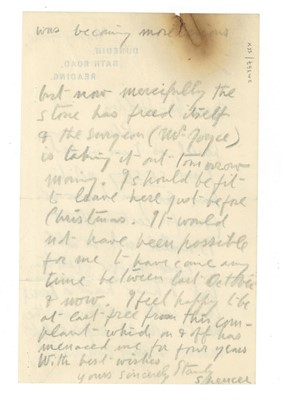 was becoming more
but now mercifully the
stone has freed itself
& the surgeon (Mr Joyce)
is taking it out tomorrow
morning. I should be fit
to leave here just before
Christmas. It would
not have been possible
for me to have come any
time between last October
& now. I feel happy to be
at last free from this com-
plaint which on & off has
menaced me for four years
With best wishes
yours sincerely Stanley
Spencer
DUNEDIN
BATH ROAD,
READING.